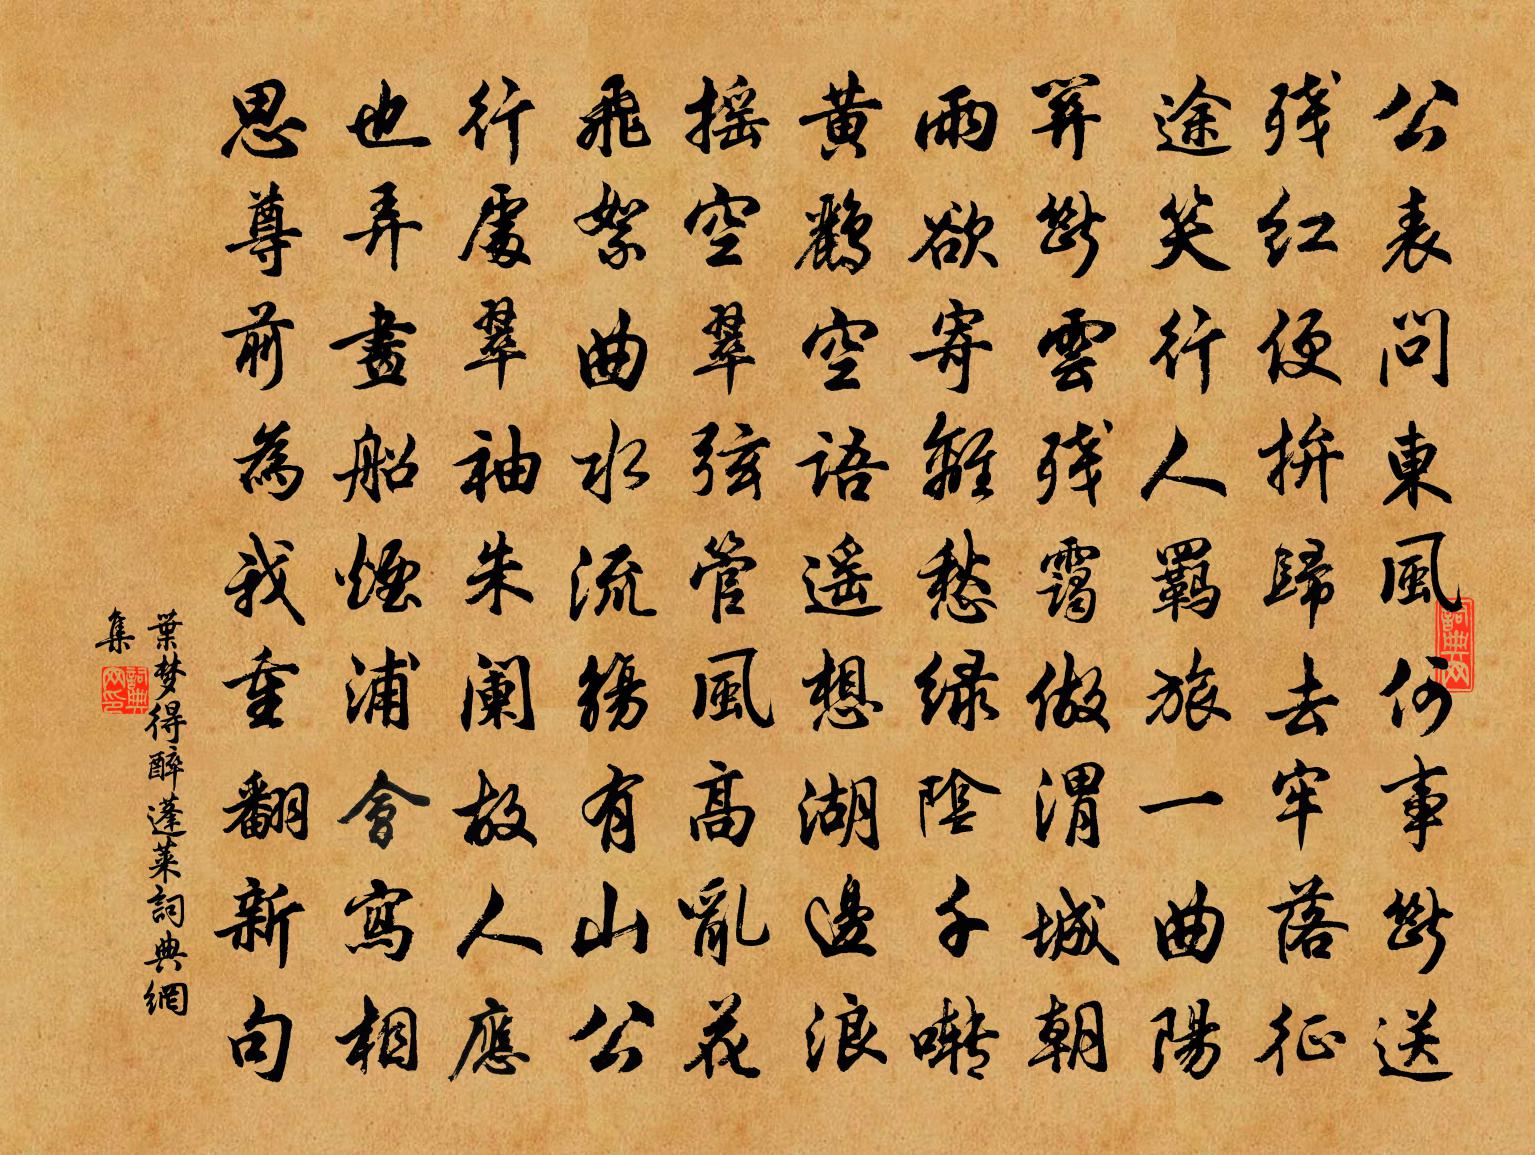 公表問東風何事斷送
残紅便拚歸去牢落征
途笑行人羈旅一曲陽
關斷雲残靄做渭城朝
雨欲寄離愁緑陰千囀
黄鸝空語遥想湖邊浪
摇空翠弦管風高亂花
飛絮曲水流觴有山公
行處翠袖朱闌故人應
也弄畫船煙浦會寫相
思尊前為我重翻新句
葉梦得醉蓬莱詞典網
集
詞典网
詞典网印